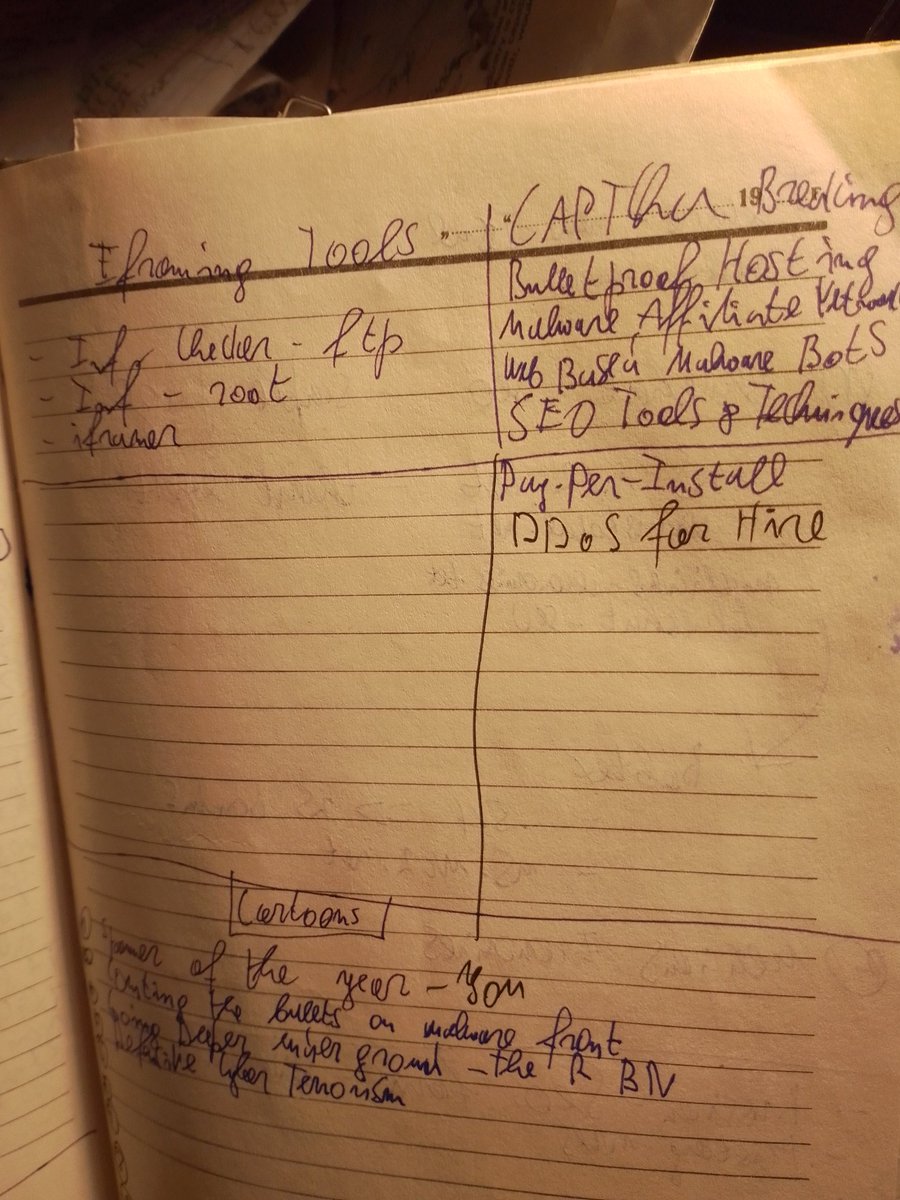 Iframing Tools
- Inf Checker - ftp
- Inf - root
- iframer
CAPTcha Breaking
Bulletproof Hosting
Malware Affiliate
Web Based Malware Bots
SEO Tools & Techniques
Pay-Per-Install
DDoS for Hire
Cartoons
of the year - You
the bullets on malware front
Deeper underground - the RBN
Cyber Terrorism